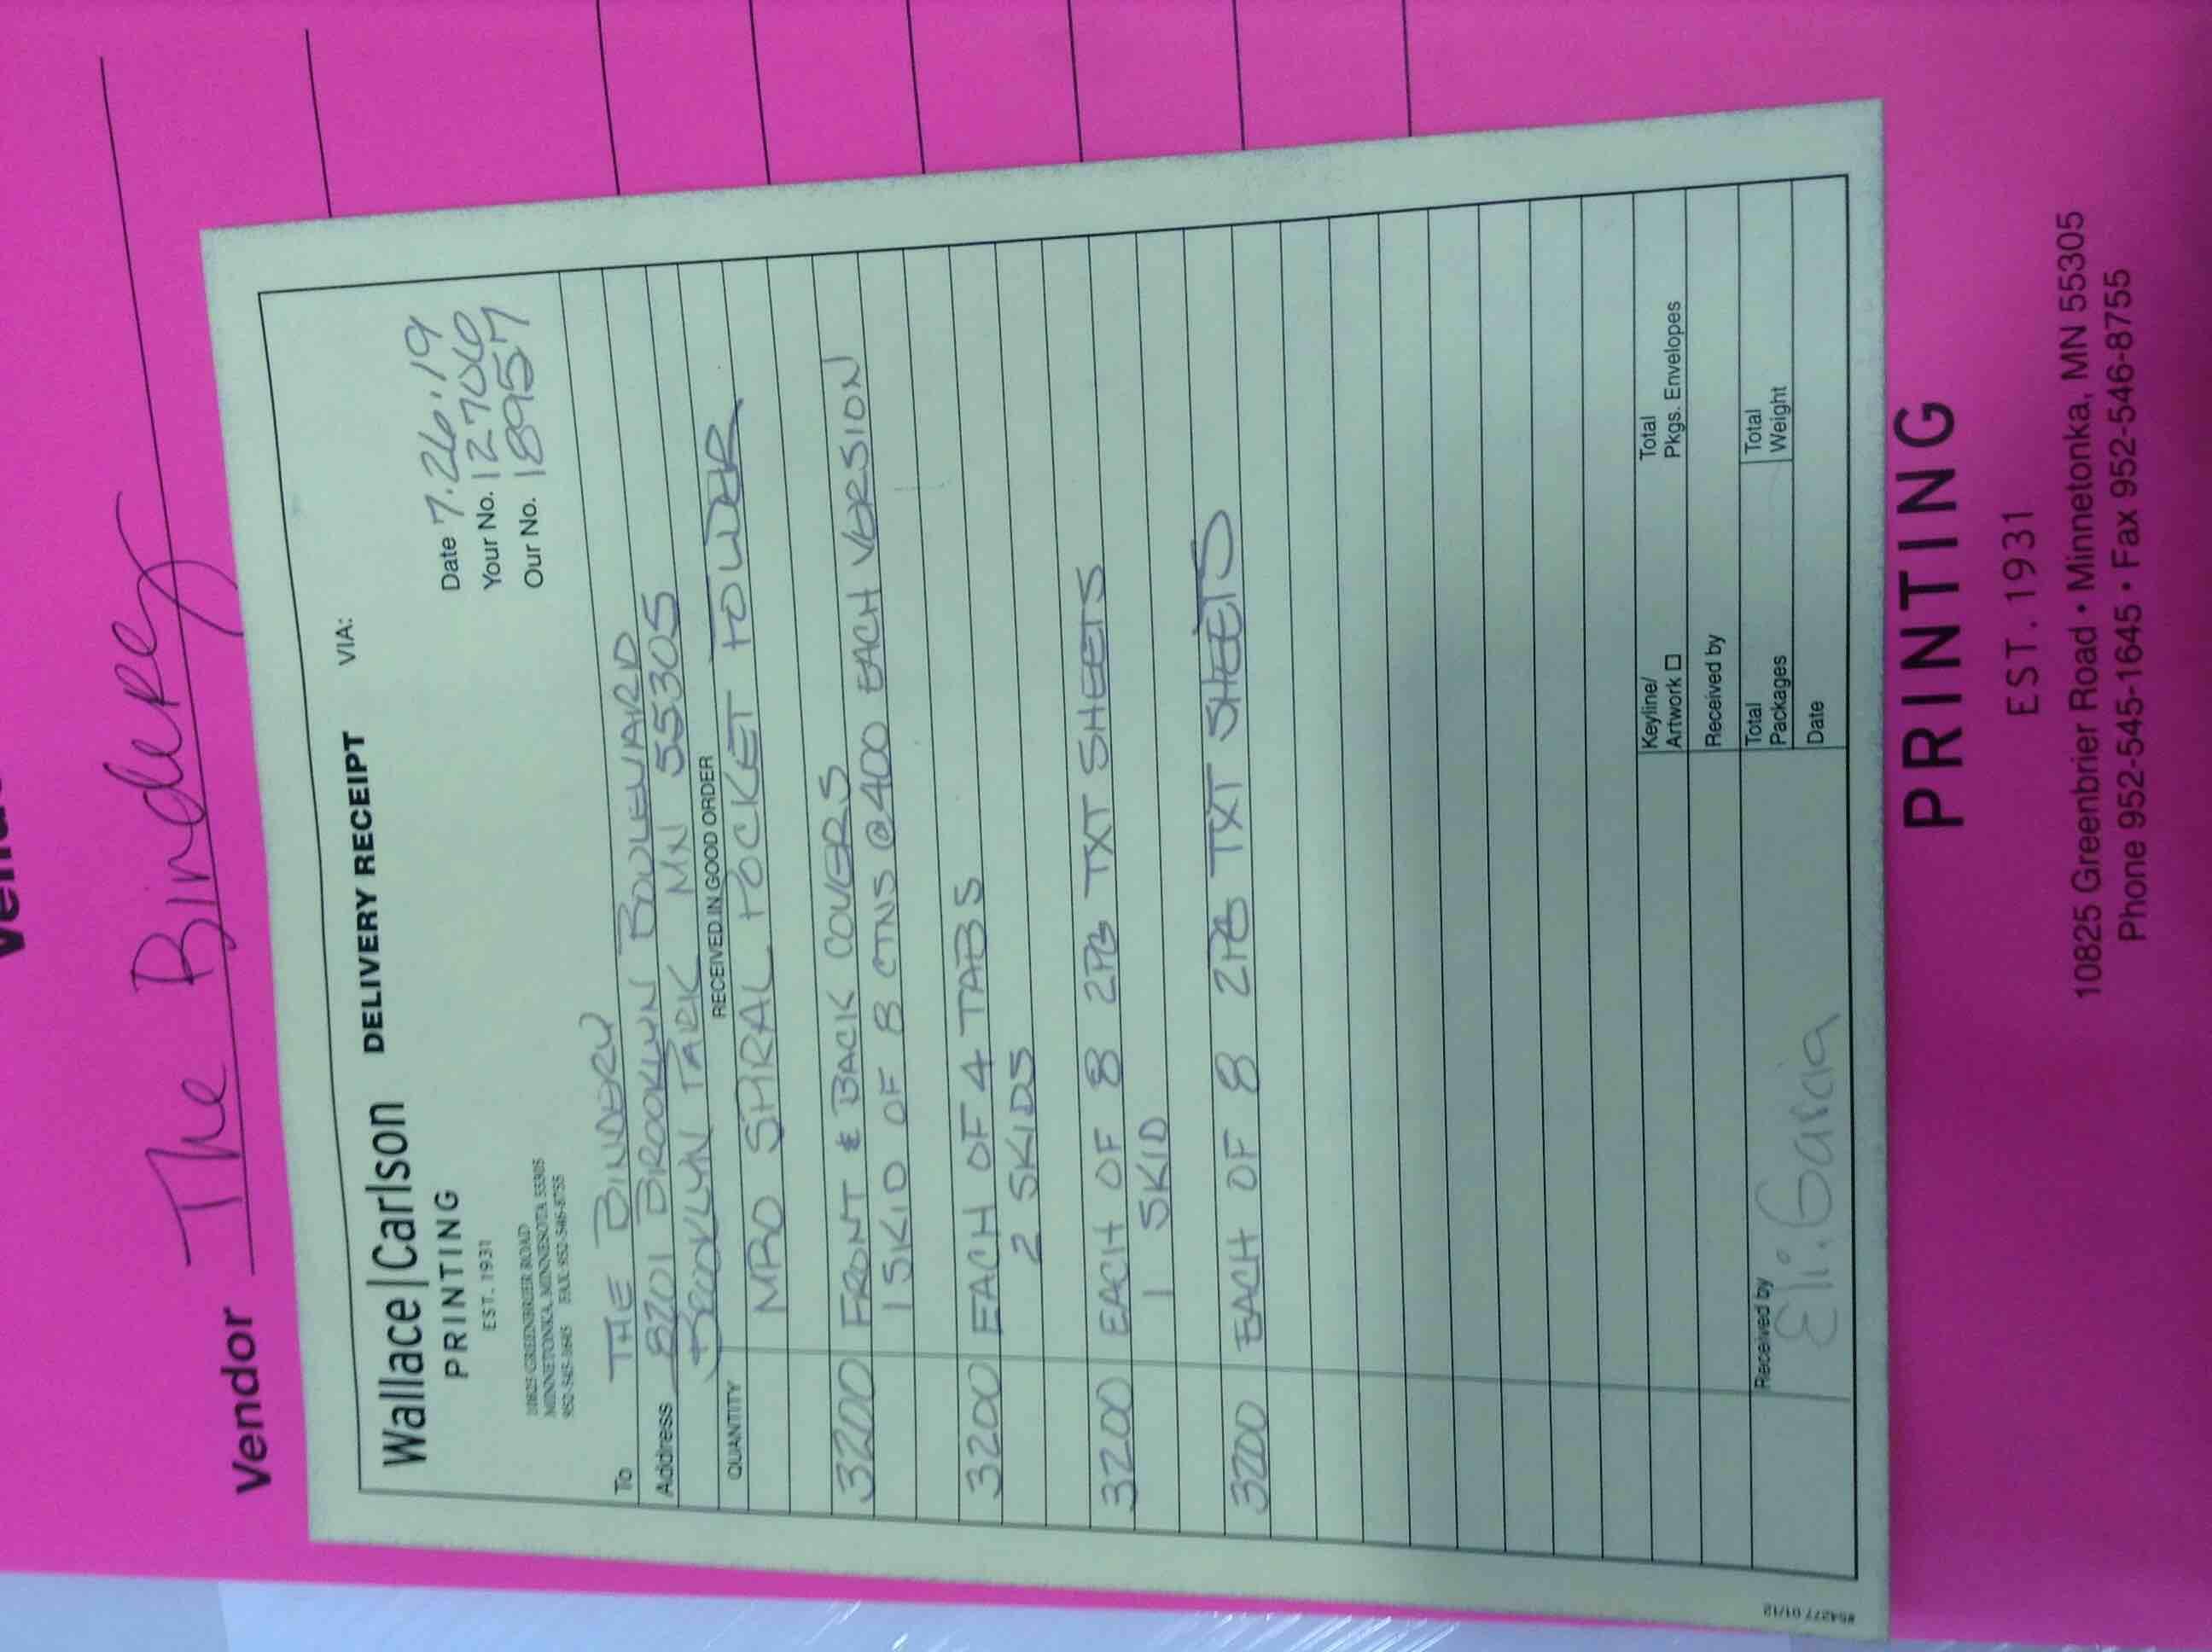 Vendor The Bindery
Wallace|Carlson DELIVERY RECEIPT VIA:
PRINTING
EST. 1931
Date 7.26.19
Your No. 127060
Our No. 18957
10825 GREENBRIER ROAD
MINNETONKA, MINNESOTA 55305
952-545-1645 FAX 952-546-8755
To THE BINDERY
Address 8201 BROOKLYN BOULEVARD
BROOKLYN PARK MN 55305
QUANTITY RECEIVED IN GOOD ORDER
MRO SPIRAL POCKET FOLDER
3200 FRONT & BACK COVERS
1 SKID OF 8 CTNS @400 EACH VERSION
3200 EACH OF 4 TABS
2 SKIDS
3200 EACH OF 8 2PG TXT SHEETS
1 SKID
3200 EACH OF 8 2PG TXT SHEETS
Keyline/ Artwork Total Pkgs. Envelopes
Received by
Received by Eli. Garcia
Total Packages Total Weight
Date
#54277 01/12
PRINTING
EST. 1931
10825 Greenbrier Road • Minnetonka, MN 55305
Phone 952-545-1645 • Fax 952-546-8755